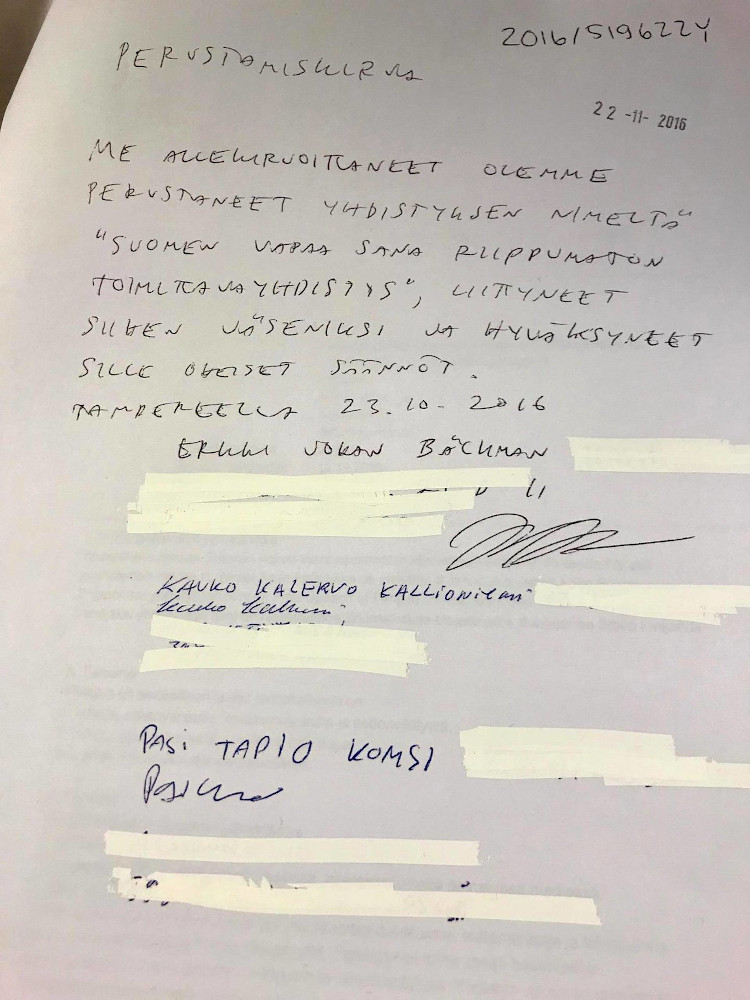 2016/519622Y
PERUSTAMISKIRJA
22-11-2016
ME ALLEKIRJOITTANEET OLEMME
PERUSTANEET YHDISTYKSEN NIMELTÄ
"SUOMEN VAPAA SANA RIIPPUMATON
TOIMITTAJAYHDISTYS", LIITTYNEET
SIIHEN JÄSENIKSI JA HYVÄKSYNEET
SILLE OHEISET SÄÄNNÖT.
TAMPEREELLA 23.10.2016
ERKKI JOHAN BÄCKMAN
KAUKO KALERVO KALLIONIEMI
Kauko
PASI TAPIO KOMSI